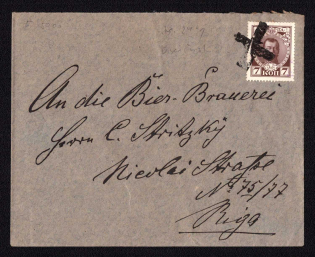 7 КОП 7
An die Bier-Brauerei
Herrn C. Stritzky
Nicolai Straße
No 75/77
Riga